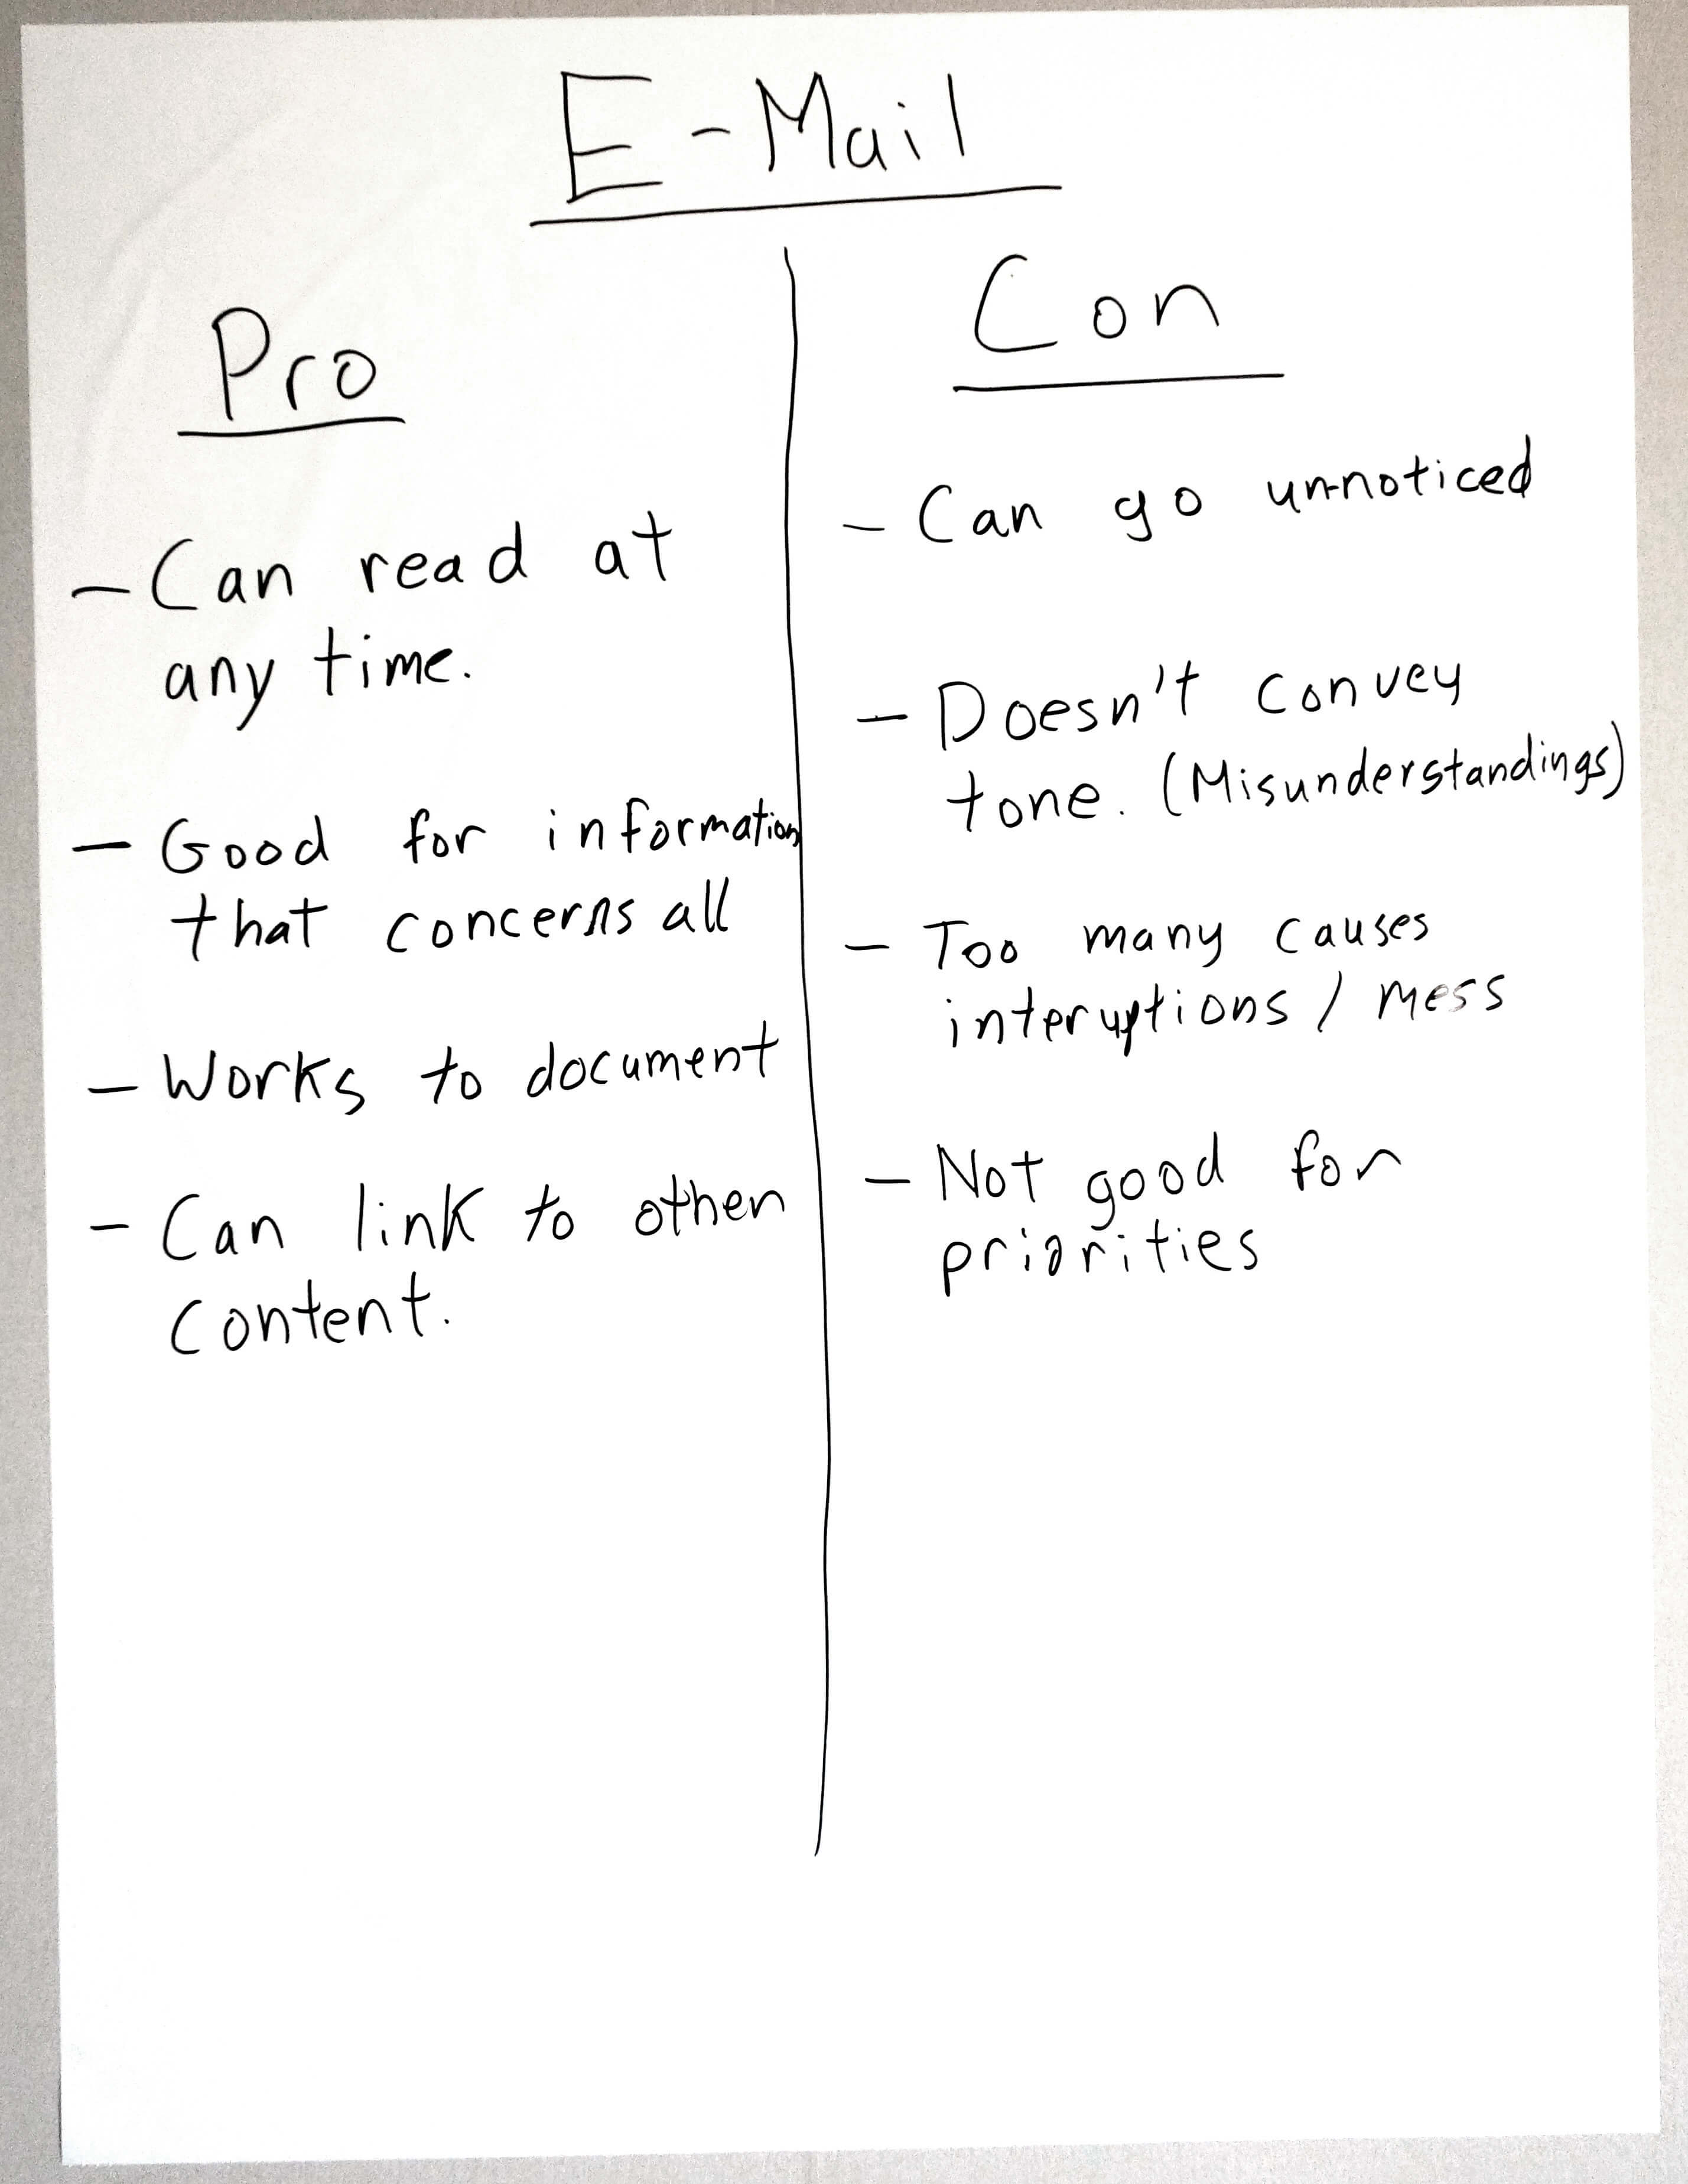 E-Mail
Pro
- Can read at
any time.
- Good for information
that concerns all
- Works to document
- Can link to other
content.
Con
- Can go un-noticed
- Doesn't convey
tone. (Misunderstandings)
- Too many causes
interuptions / mess
- Not good for
priorities